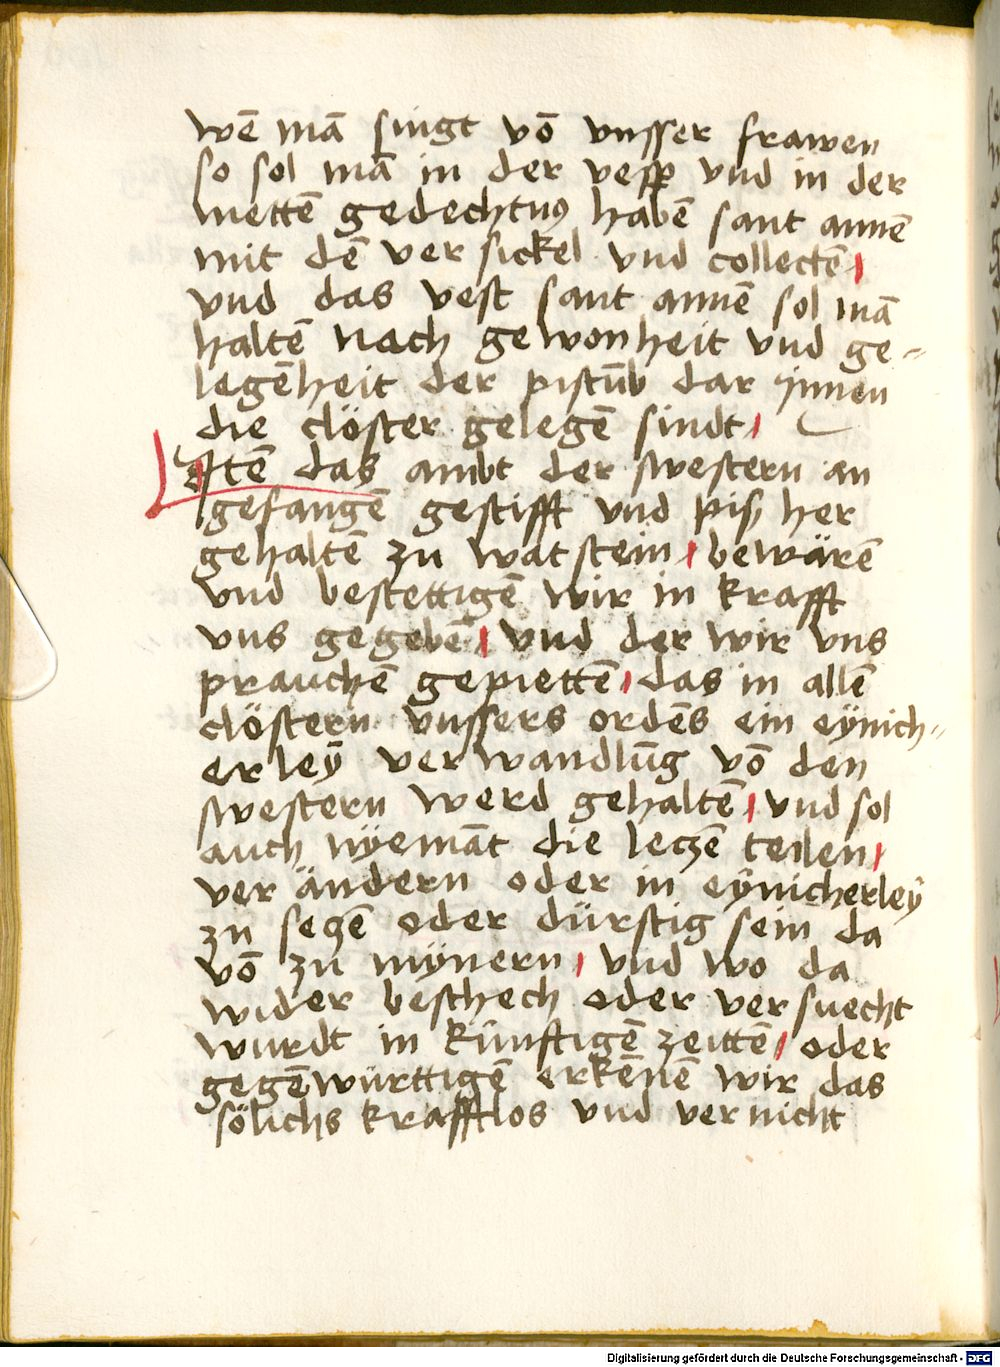 wē mā singt vō vnsser frawen
so sol mā in der vesp̄ vnd in der
mettē gedechtnꝰ habē sant annē
mit dē versickel vnd collectē
vnd das vest sant annē sol mā
haltē nach gewonheit vnd ge-
legēheit der pistūb dar ynnen
die clöster gelegē sindt
Itē das ambt der swestern an
gefangē gestifft vnd piß her
gehaltē zu watstein bewärē
vnd bestettigē wir in krafft
vns gegebē vnd der wir vns
prauchē gepiettē das in allē
clöstern vnssers ordēs ein eÿnich-
erleÿ verwandlūg vō den
swestern werd gehaltē vnd sol
auch nÿemāt die leczē teilen
verändern oder in eÿnicherleÿ
zu seczē oder dürstig sein da
vō zu mÿnern vnd wo da
wider beschech oder versuecht
wurdt in künftigē zeittē oder
gegēwürttigē erkēnē wir das
sölichs krafftlos vnd vernicht
Digitalisierung gefördert durch die Deutsche Forschungsgemeinschaft - DFG